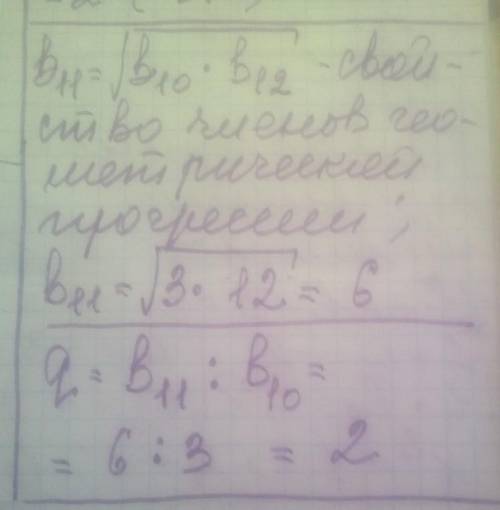 b₁₁ = √b₁₀ · b₁₂ - свой-
ство членов гео-
метрической
прогрессии;
b₁₁ = √3 · 12 = 6
q = b₁₁ : b₁₀ =
= 6 : 3 = 2